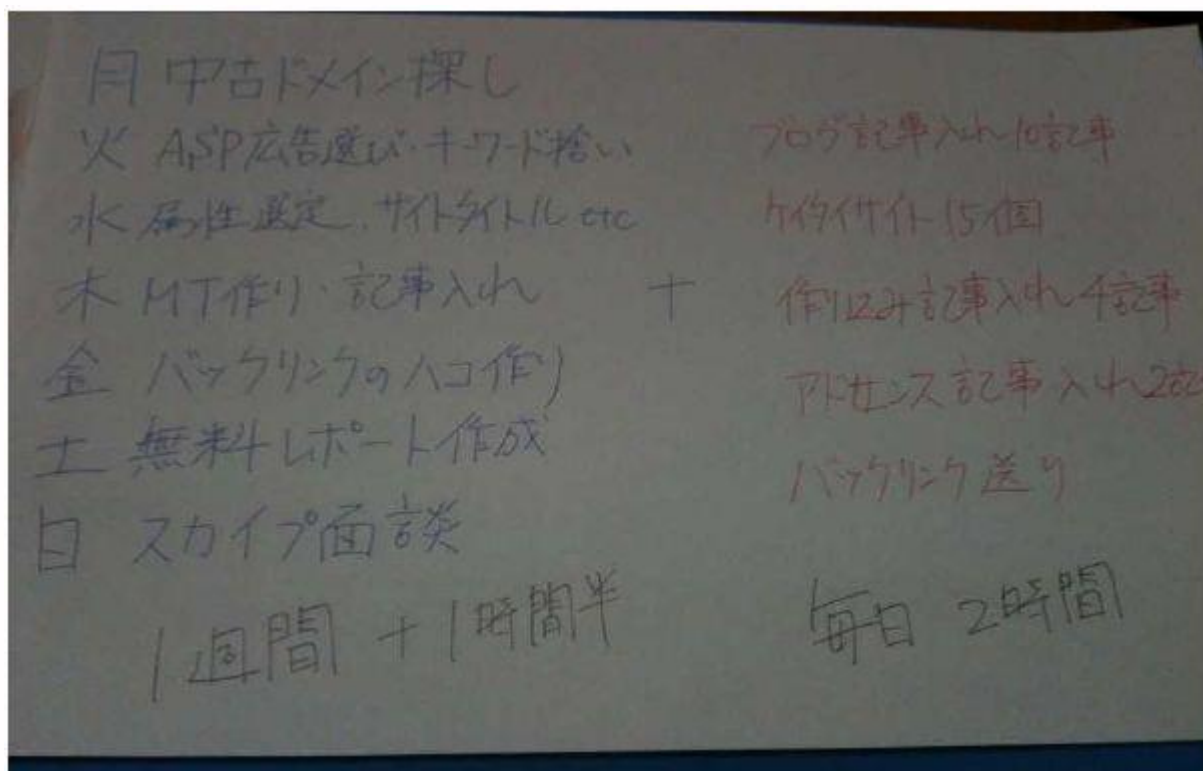 月 中古ドメイン探し
火 ASP広告選び・キーワード拾い
水 属性選定、サイトタイトル etc
木 MT作り・記事入れ
金 バックリンクのハコ作り
土 無料レポート作成
日 スカイプ面談
1週間 + 1時間半
+
ブログ記事入れ10記事
ケイタイサイト15個
作り込み記事入れ4記事
アドセンス記事入れ2記
バックリンク送り
毎日 2時間